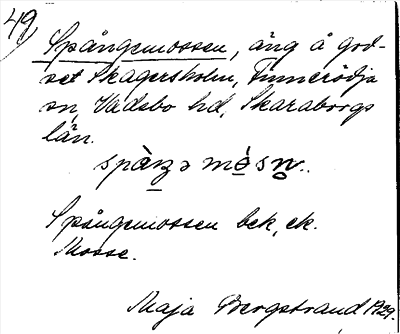 49,
Spångemossen, äng å god-
set Skagersholm, Finnerödja
sn, Vadsbo hd, Skaraborgs
län.
Spångemossen bek, ek.
Mosse.
Maja Bergstrand 1929.